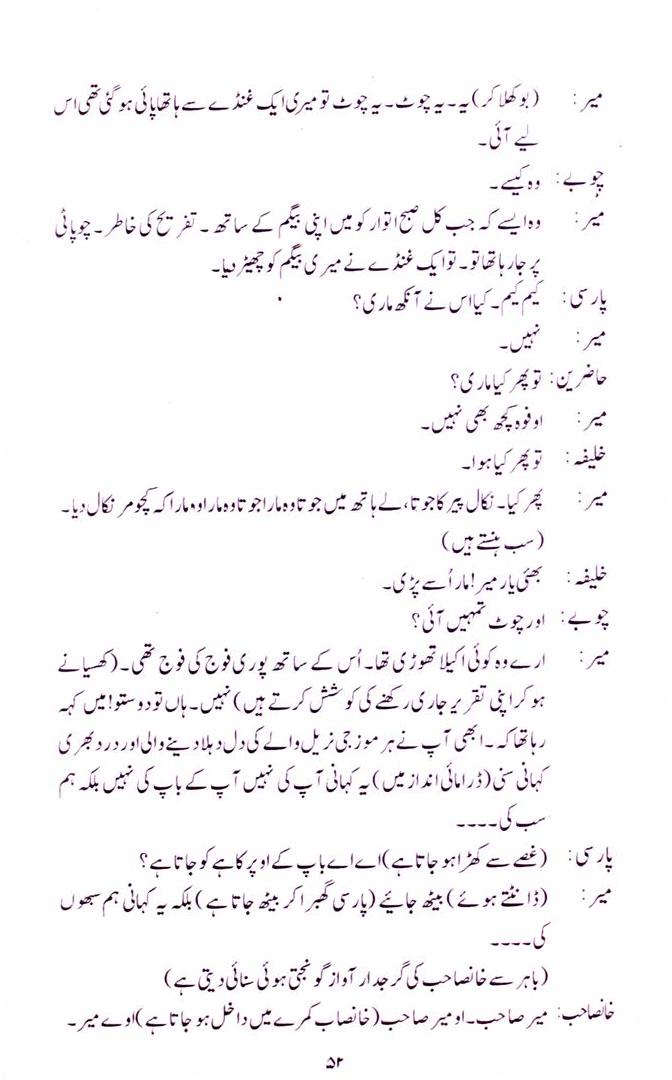 میر: (بوکھلا کر) یہ۔ یہ چوٹ۔ یہ چوٹ تو میری ایک غنڈے سے ہاتھا پائی ہو گئی تھی اس
لیے آئی۔
چوبے: وہ کیسے۔
میر: وہ ایسے کہ جب کل صبح اتوار کو میں اپنی بیگم کے ساتھ۔ تفریح کی خاطر۔ چوپاٹی
پر جا رہا تھا تو۔ تو ایک غنڈے نے میری بیگم کو چھیڑ دیا۔
پارسی: کیم کیم۔ کیا اس نے آنکھ ماری؟
میر: نہیں۔
حاضرین: تو پھر کیا ماری؟
میر: اوفوہ کچھ بھی نہیں۔
خلیفہ: تو پھر کیا ہوا۔
میر: پھر کیا۔ نکال پیر کا جوتا، لے ہاتھ میں جوتا وہ مارا جوتا وہ مارا وہ مارا کہ کچومر نکال دیا۔
(سب ہنستے ہیں)
خلیفہ: بھئی یار میر! مار اُسے پڑی۔
چوبے: اور چوٹ تمہیں آئی؟
میر: ارے وہ کوئی اکیلا تھوڑی تھا۔ اُس کے ساتھ پوری فوج کی فوج تھی۔ (کھسیانے
ہو کر اپنی تقریر جاری رکھنے کی کوشش کرتے ہیں) نہیں۔ ہاں تو دوستو! میں کہہ
رہا تھا کہ۔ ابھی آپ نے ہرموزجی نریل والے کی دل دہلا دینے والی اور درد بھری
کہانی سنی (ڈرامائی انداز میں) یہ کہانی آپ کی نہیں آپ کے باپ کی نہیں بلکہ ہم
سب کی۔۔۔۔
پارسی: (غصے سے کھڑا ہو جاتا ہے) اے اے باپ کے اوپر کاہے کو جاتا ہے؟
میر: (ڈانٹتے ہوئے) بیٹھ جائیے (پارسی گھبرا کر بیٹھ جاتا ہے) بلکہ یہ کہانی ہم سبھوں
کی۔۔۔۔
(باہر سے خانصاحب کی گرجدار آواز گونجتی ہوئی سنائی دیتی ہے)
خانصاحب: میر صاحب۔ او میر صاحب (خانصاب کمرے میں داخل ہو جاتا ہے) اوے میر۔
۵۲